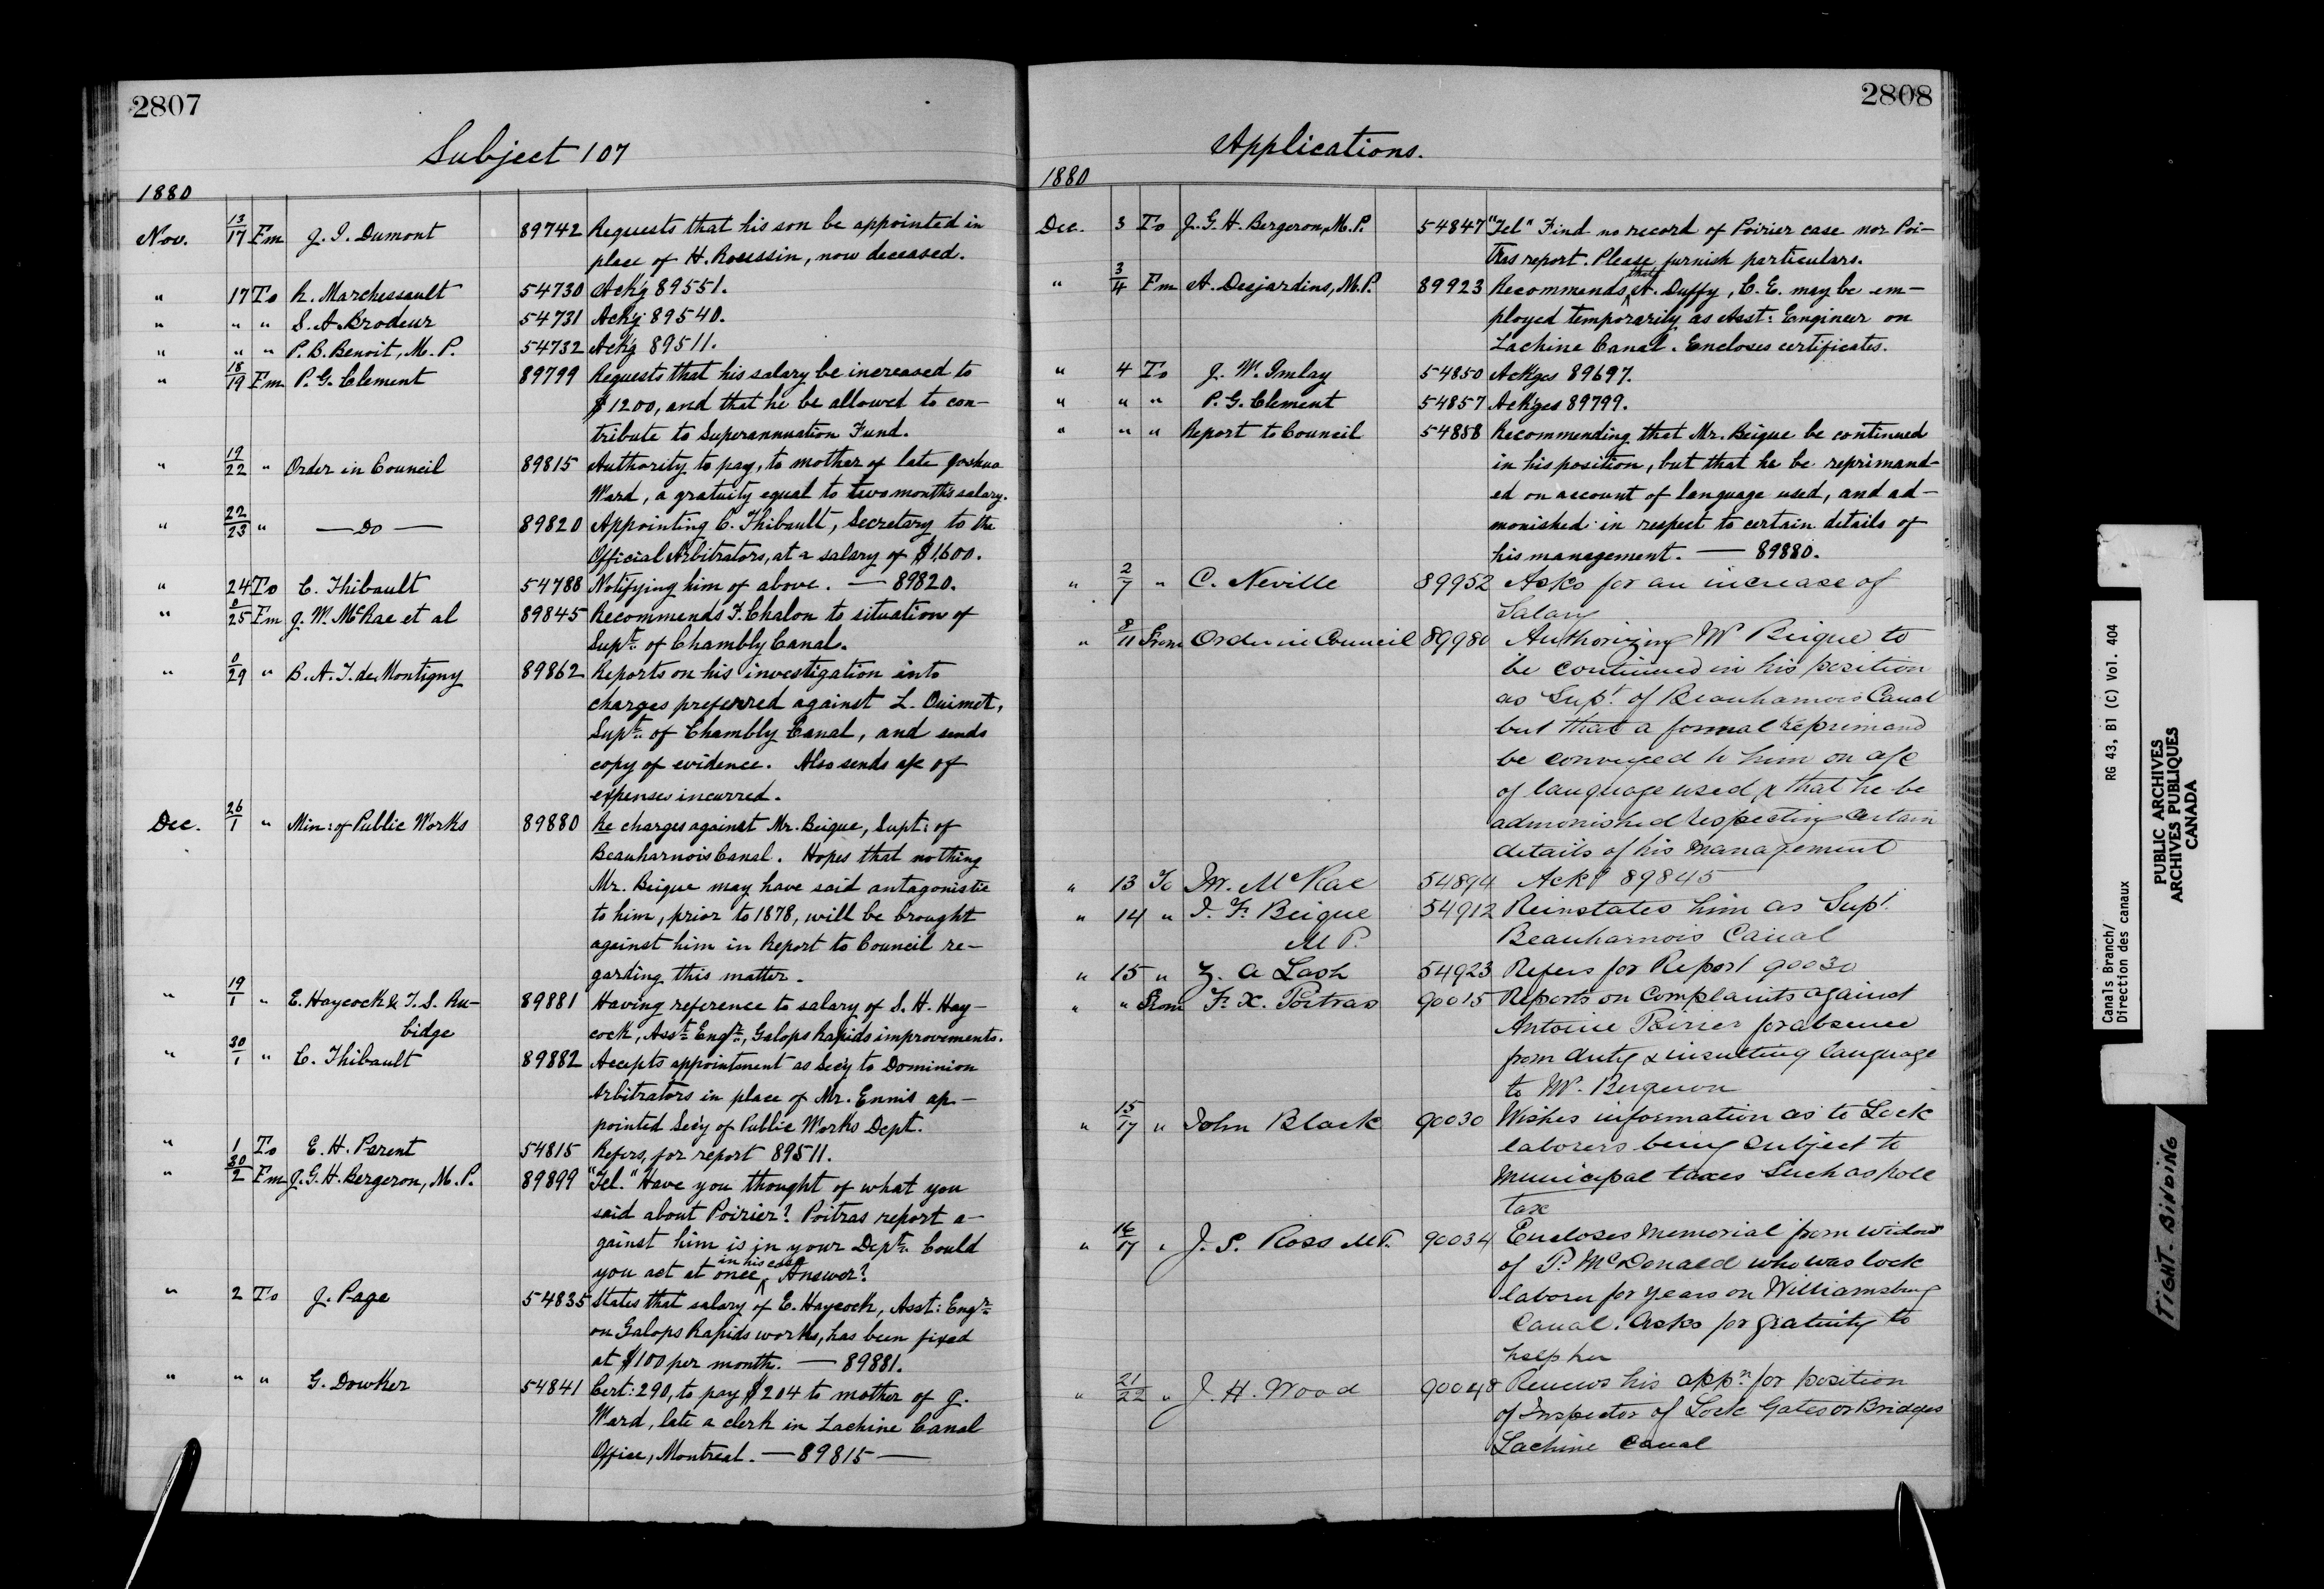 2807
Subject 107
1880
Nov. 13/17 Fm J. I. Dumont 89742 Requests that his son be appointed in
place of H. Roussin, now deceased.
" 17 To R. Marchessault 54730 Ack'g 89551.
" " " S. A. Brodeur 54731 Ack'g 89540.
" " " P. B. Benoit, M. P. 54732 Ack'g 89511.
" 18/19 Fm P. G. Clement 89799 Requests that his salary be increased to
$1200, and that he be allowed to con-
tribute to Superannuation Fund.
" 19/22 " Order in Council 89815 Authority to pay, to mother of late Joshua
Ward, a gratuity equal to two month's salary.
" 22/23 " — Do — 89820 Appointing C. Thibault, Secretary to the
Official Arbitrators, at a salary of $1,600.
" 24 To C. Thibault 54788 Notifying him of above. — 89820.
" 0/25 Fm J. W. McRae et al 89845 Recommends F. Chalon to situation of
Supt. of Chambly Canal.
" 0/29 " B. A. T. de Montigny 89862 Reports on his investigation into
charges preferred against L. Ouimet,
Supt. of Chambly Canal, and sends
copy of evidence. Also sends a/c of
expenses incurred.
Dec. 26/1 " Min: of Public Works 89880 Re charges against Mr. Beique, Supt: of
Beauharnois Canal. Hopes that nothing
Mr. Beique may have said antagonistic
to him, prior to 1878, will be brought
against him in Report to Council re-
garding this matter.
" 19/1 " E. Haycock & T. S. Ru- 89881 Having reference to salary of S. H. Hay-
bidge cock, Asst. Engr., Galops Rapids improvements.
" 30/1 " C. Thibault 89882 Accepts appointment as Sec'y to Dominion
Arbitrators in place of Mr. Ennis ap-
pointed Sec'y of Public Works Dept.
" 1 To E. H. Parent 54815 Refers, for report 89511.
" 30/2 Fm J. G. H. Bergeron, M. P. 89899 "Tel." Have you thought of what you
said about Poirier? Poitras report a-
gainst him is in your Dept. Could
you act at once in his case Answer?
" 2 To J. Page 54835 States that salary of E. Haycock, Asst: Engr.
on Galops Rapids works, has been fixed
at $100 per month. — 89881.
" " " G. Dowker 54841 Cert: 290, to pay $204 to mother of J.
Ward, late a clerk in Lachine Canal
Office, Montreal. — 89815 —
2808
Applications.
1880
Dec. 3 To J. G. H. Bergeron, M. P. 54847 "Tel" Find no record of Poirier case nor Poi-
tras report. Please furnish particulars.
" 3/4 Fm A. Desjardins, M. P. 89923 Recommends that A. Duffy, C. E. may be em-
ployed temporarily as Asst: Engineer on
Lachine Canal. Encloses certificates.
" 4 To J. W. Imlay 54850 Ackges 89697.
" " " P. G. Clement 54857 Ackges 89799.
" " " Report to Council 54858 Recommending that Mr. Beique be continued
in his position, but that he be reprimand-
ed on account of language used, and ad-
monished in respect to certain details of
his management. — 89880.
" 2/7 " C. Neville 89952 Asks for an increase of
Salary
" 8/11 From Order in Council 89980 Authorizing Mr Beique to
be continued in his position
as Supt. of Beauharnois Canal
but that a formal reprimand
be conveyed to him on a/c
of language used & that he be
admonished respecting certain
details of his management
" 13 To Jn. McRae 54894 Ackg 89845
" 14 " I. F. Beique 54912 Reinstates him as Supt.
M P. Beauharnois Canal
" 15 " Z. A Lash 54923 Refers for Report 90030
" " From F. X. Poitras 90015 Reports on Complaints against
Antoine Poirier for absence
from duty & insulting language
to Mr. Bergeron
" 15/17 " John Black 90030 Wishes information as to Lock
laborers being subject to
Municipal taxes such as pole
tax
" 16/17 " J. S. Ross M P. 90034 Encloses Memorial from widow
of P. McDonald who was lock
laborer for years on Williamsburg
Canal. Asks for gratuity to
help her
" 21/22 " J. H. Wood 90048 Renews his appn. for position
of Inspector of Lock Gates or Bridges
Lachine Canal
Canals Branch/ RG 43, B1 (C) Vol. 404
Direction des canaux
PUBLIC ARCHIVES
ARCHIVES PUBLIQUES
CANADA
TIGHT BINDING